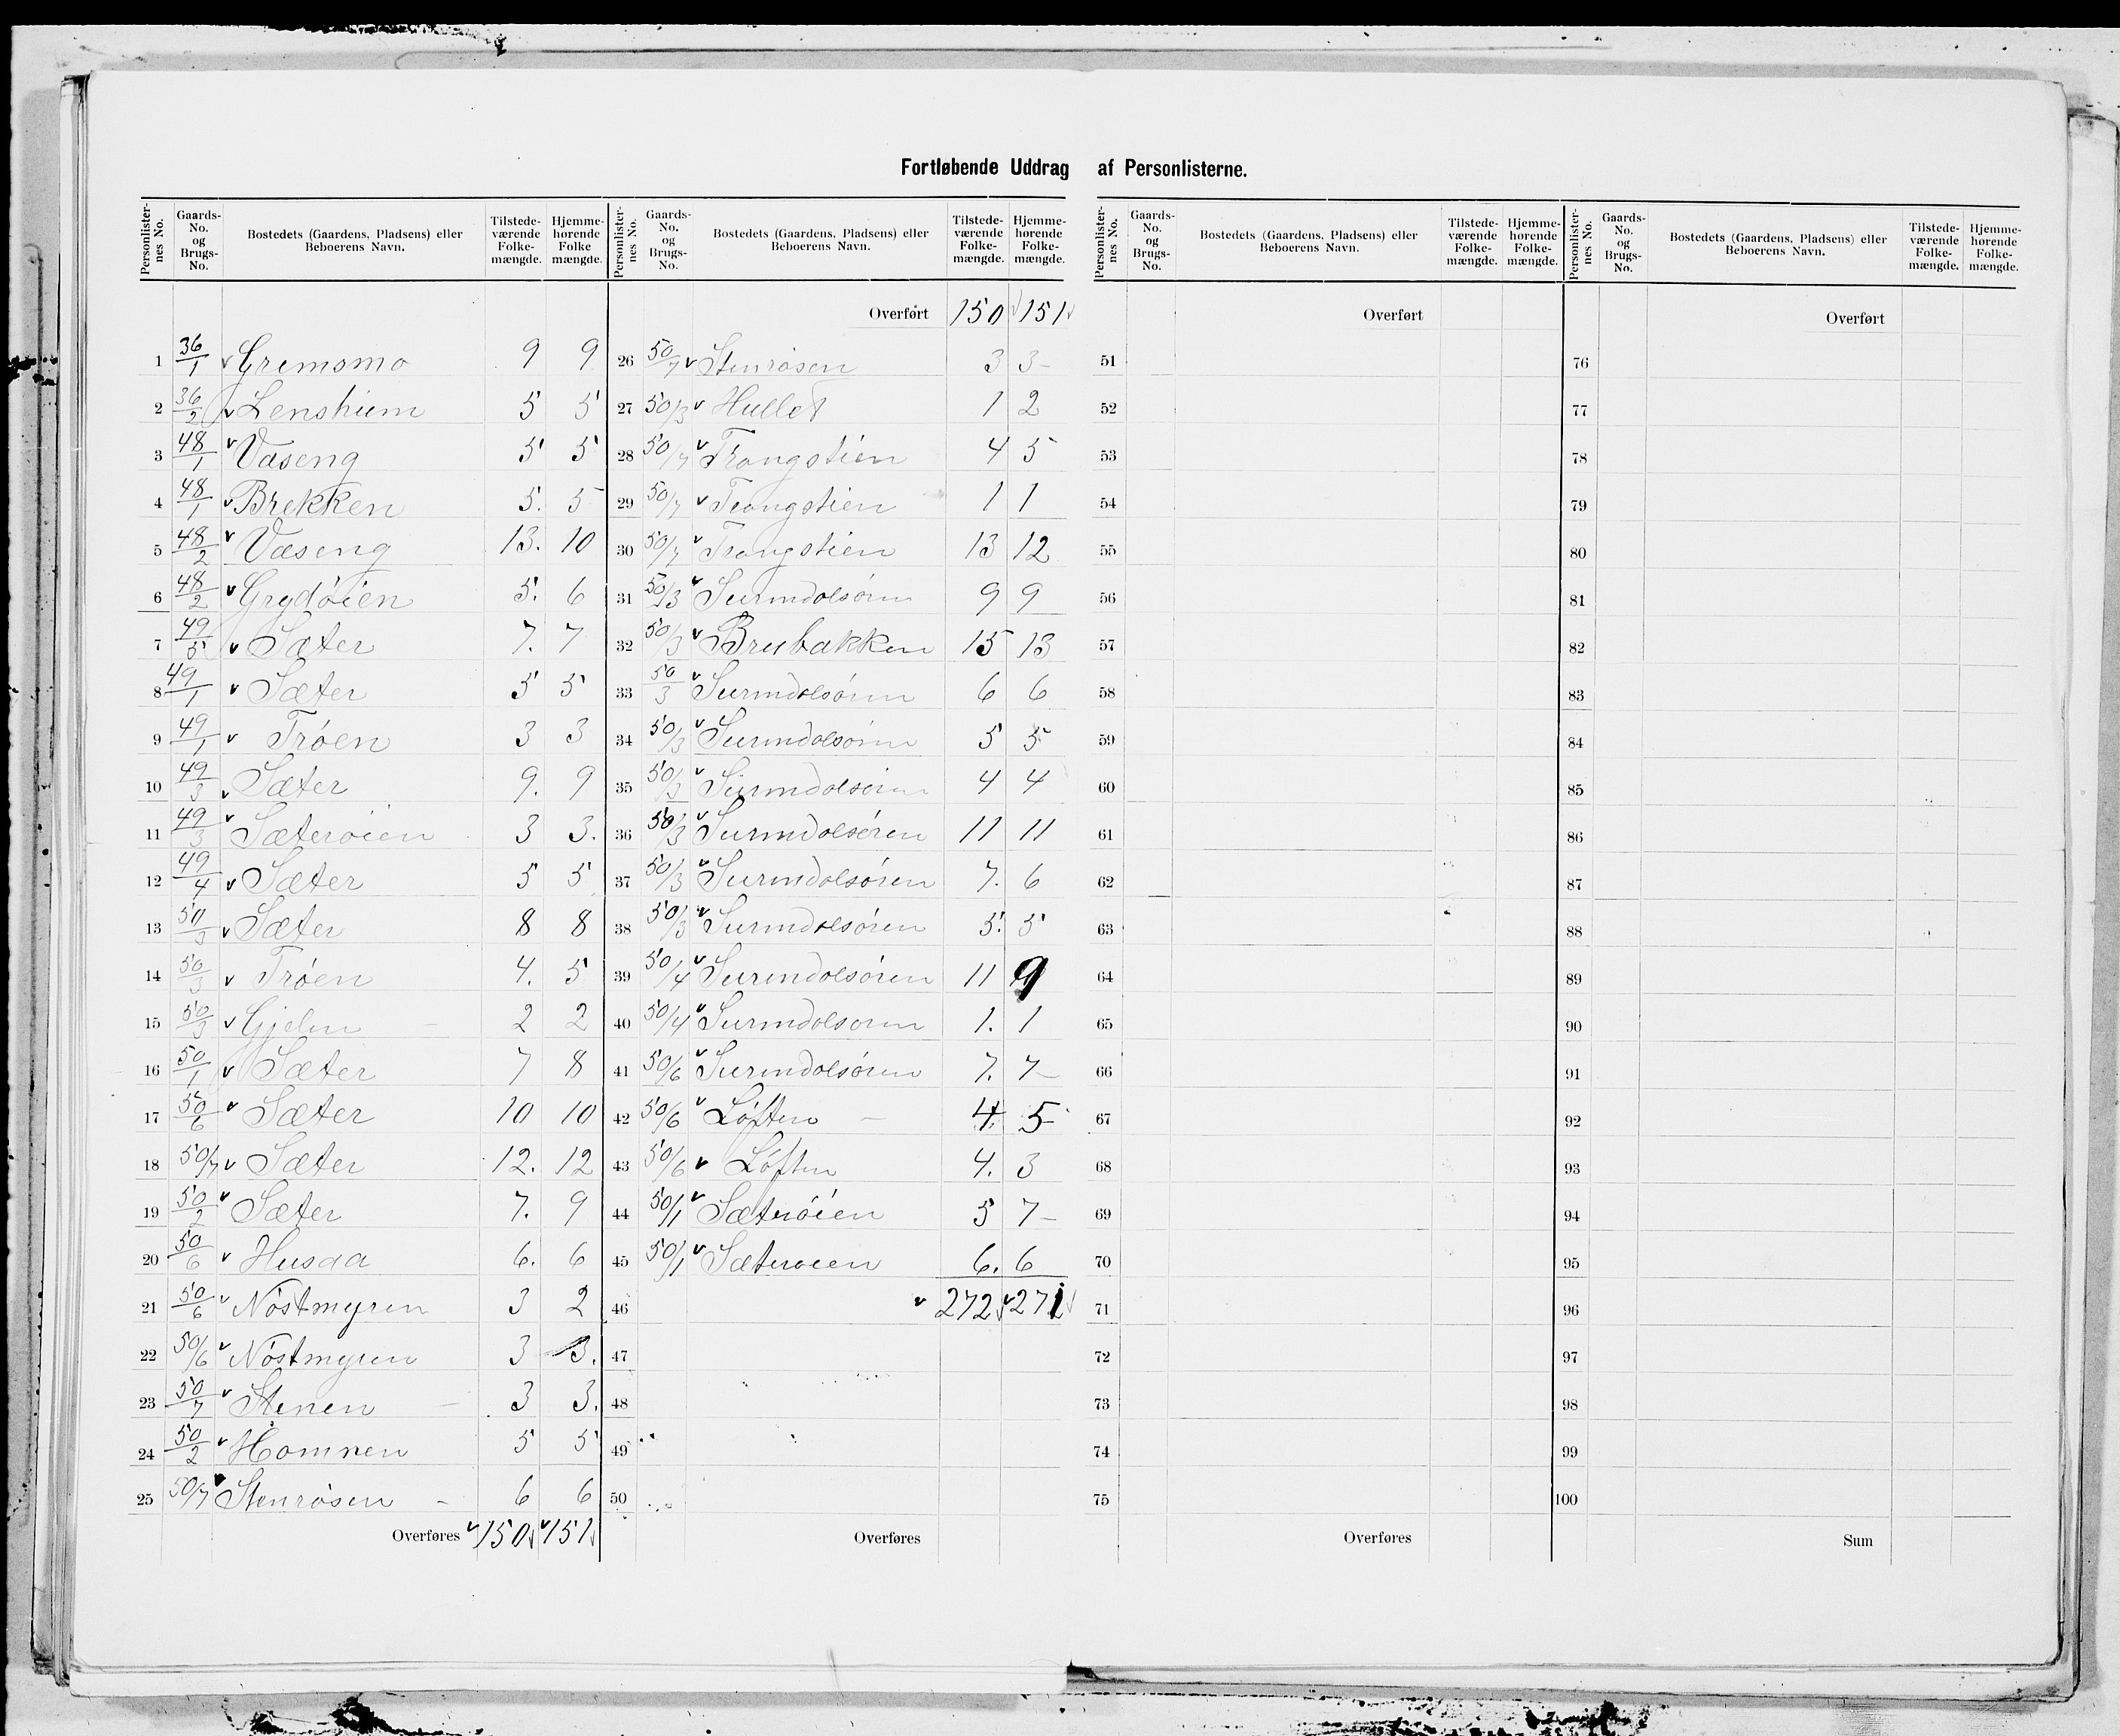 Fortløbende Uddrag af Personlisterne.
Personlister-nes No. | Gaards-No. og Brugs-No. | Bostedets (Gaardens, Pladsens) eller Beboerens Navn. | Tilstede-værende Folke-mængde. | Hjemme-hørende Folke mængde.
1 36/1 Gremsmo 9 9
2 36/2 Lenshiem 5 5
3 48/1 Vaseng 5 5
4 48/1 Brekken 5. 5
5 48/2 Væseng 13. 10
6 48/2 Grydøien 5. 6
7 49/5 Sæter 7. 7
8 49/1 Sæter 5 5
9 49/1 Trøen 3 3
10 49/3 Sæter 9. 9
11 49/3 Sæterøien 3 3.
12 49/4 Sæter 5 5
13 50/3 Sæter 8 8
14 50/3 Trøen 4. 5
15 50/3 Gjelen 2 2
16 50/1 Sæter 7 8
17 50/6 Sæter 10 10
18 50/7 Sæter 12. 12
19 50/2 Sæter 7. 9
20 50/6 Husaa 6. 6
21 50/6 Nøstmyren 3 2
22 50/6 Nøstmyren 3 3.
23 50/7 Stenen 3 3.
24 50/2 Hamnen 5 5
25 50/7 Stenrøsen 6 6
Overføres 150 151
Personlister-nes No. | Gaards-No. og Brugs-No. | Bostedets (Gaardens, Pladsens) eller Beboerens Navn. | Tilstede-værende Folke-mængde. | Hjemme-hørende Folke-mængde.
Overført 150 151
26 50/7 Stenrøsen 3 3
27 50/3 Hullet 1 2
28 50/7 Trangstien 4 5
29 50/7 Trangstien 1 1
30 50/7 Trangstien 13 12
31 50/3 Surndalsøren 9 9
32 50/3 Brubakken 15 13
33 50/3 Surndalsøren 6 6
34 50/3 Surndalsøren 5 5
35 50/3 Surndalsøren 4 4
36 50/3 Surndalsøren 11 11
37 50/3 Surndalsøren 7. 6
38 50/3 Surndalsøren 5. 5
39 50/4 Surndalsøren 11 9
40 50/4 Surndalsøren 1. 1
41 50/6 Surndalsøren 7. 7
42 50/6 Løften 4. 5
43 50/6 Løften 4. 3
44 50/1 Sæterøien 5 7
45 50/1 Sæterøien 6. 6
46 272 271
47
48
49
50
Overføres
Personlister-nes No. | Gaards-No. og Brugs-No. | Bostedets (Gaardens, Pladsens) eller Beboerens Navn. | Tilstede-værende Folke-mængde. | Hjemme-hørende Folke-mængde.
Overført
51
52
53
54
55
56
57
58
59
60
61
62
63
64
65
66
67
68
69
70
71
72
73
74
75
Overføres
Personlister-nes No. | Gaards-No. og Brugs-No. | Bostedets (Gaardens, Pladsens) eller Beboerens Navn. | Tilstede-værende Folke-mængde. | Hjemme-hørende Folke-mængde.
Overført
76
77
78
79
80
81
82
83
84
85
86
87
88
89
90
91
92
93
94
95
96
97
98
99
100
Sum